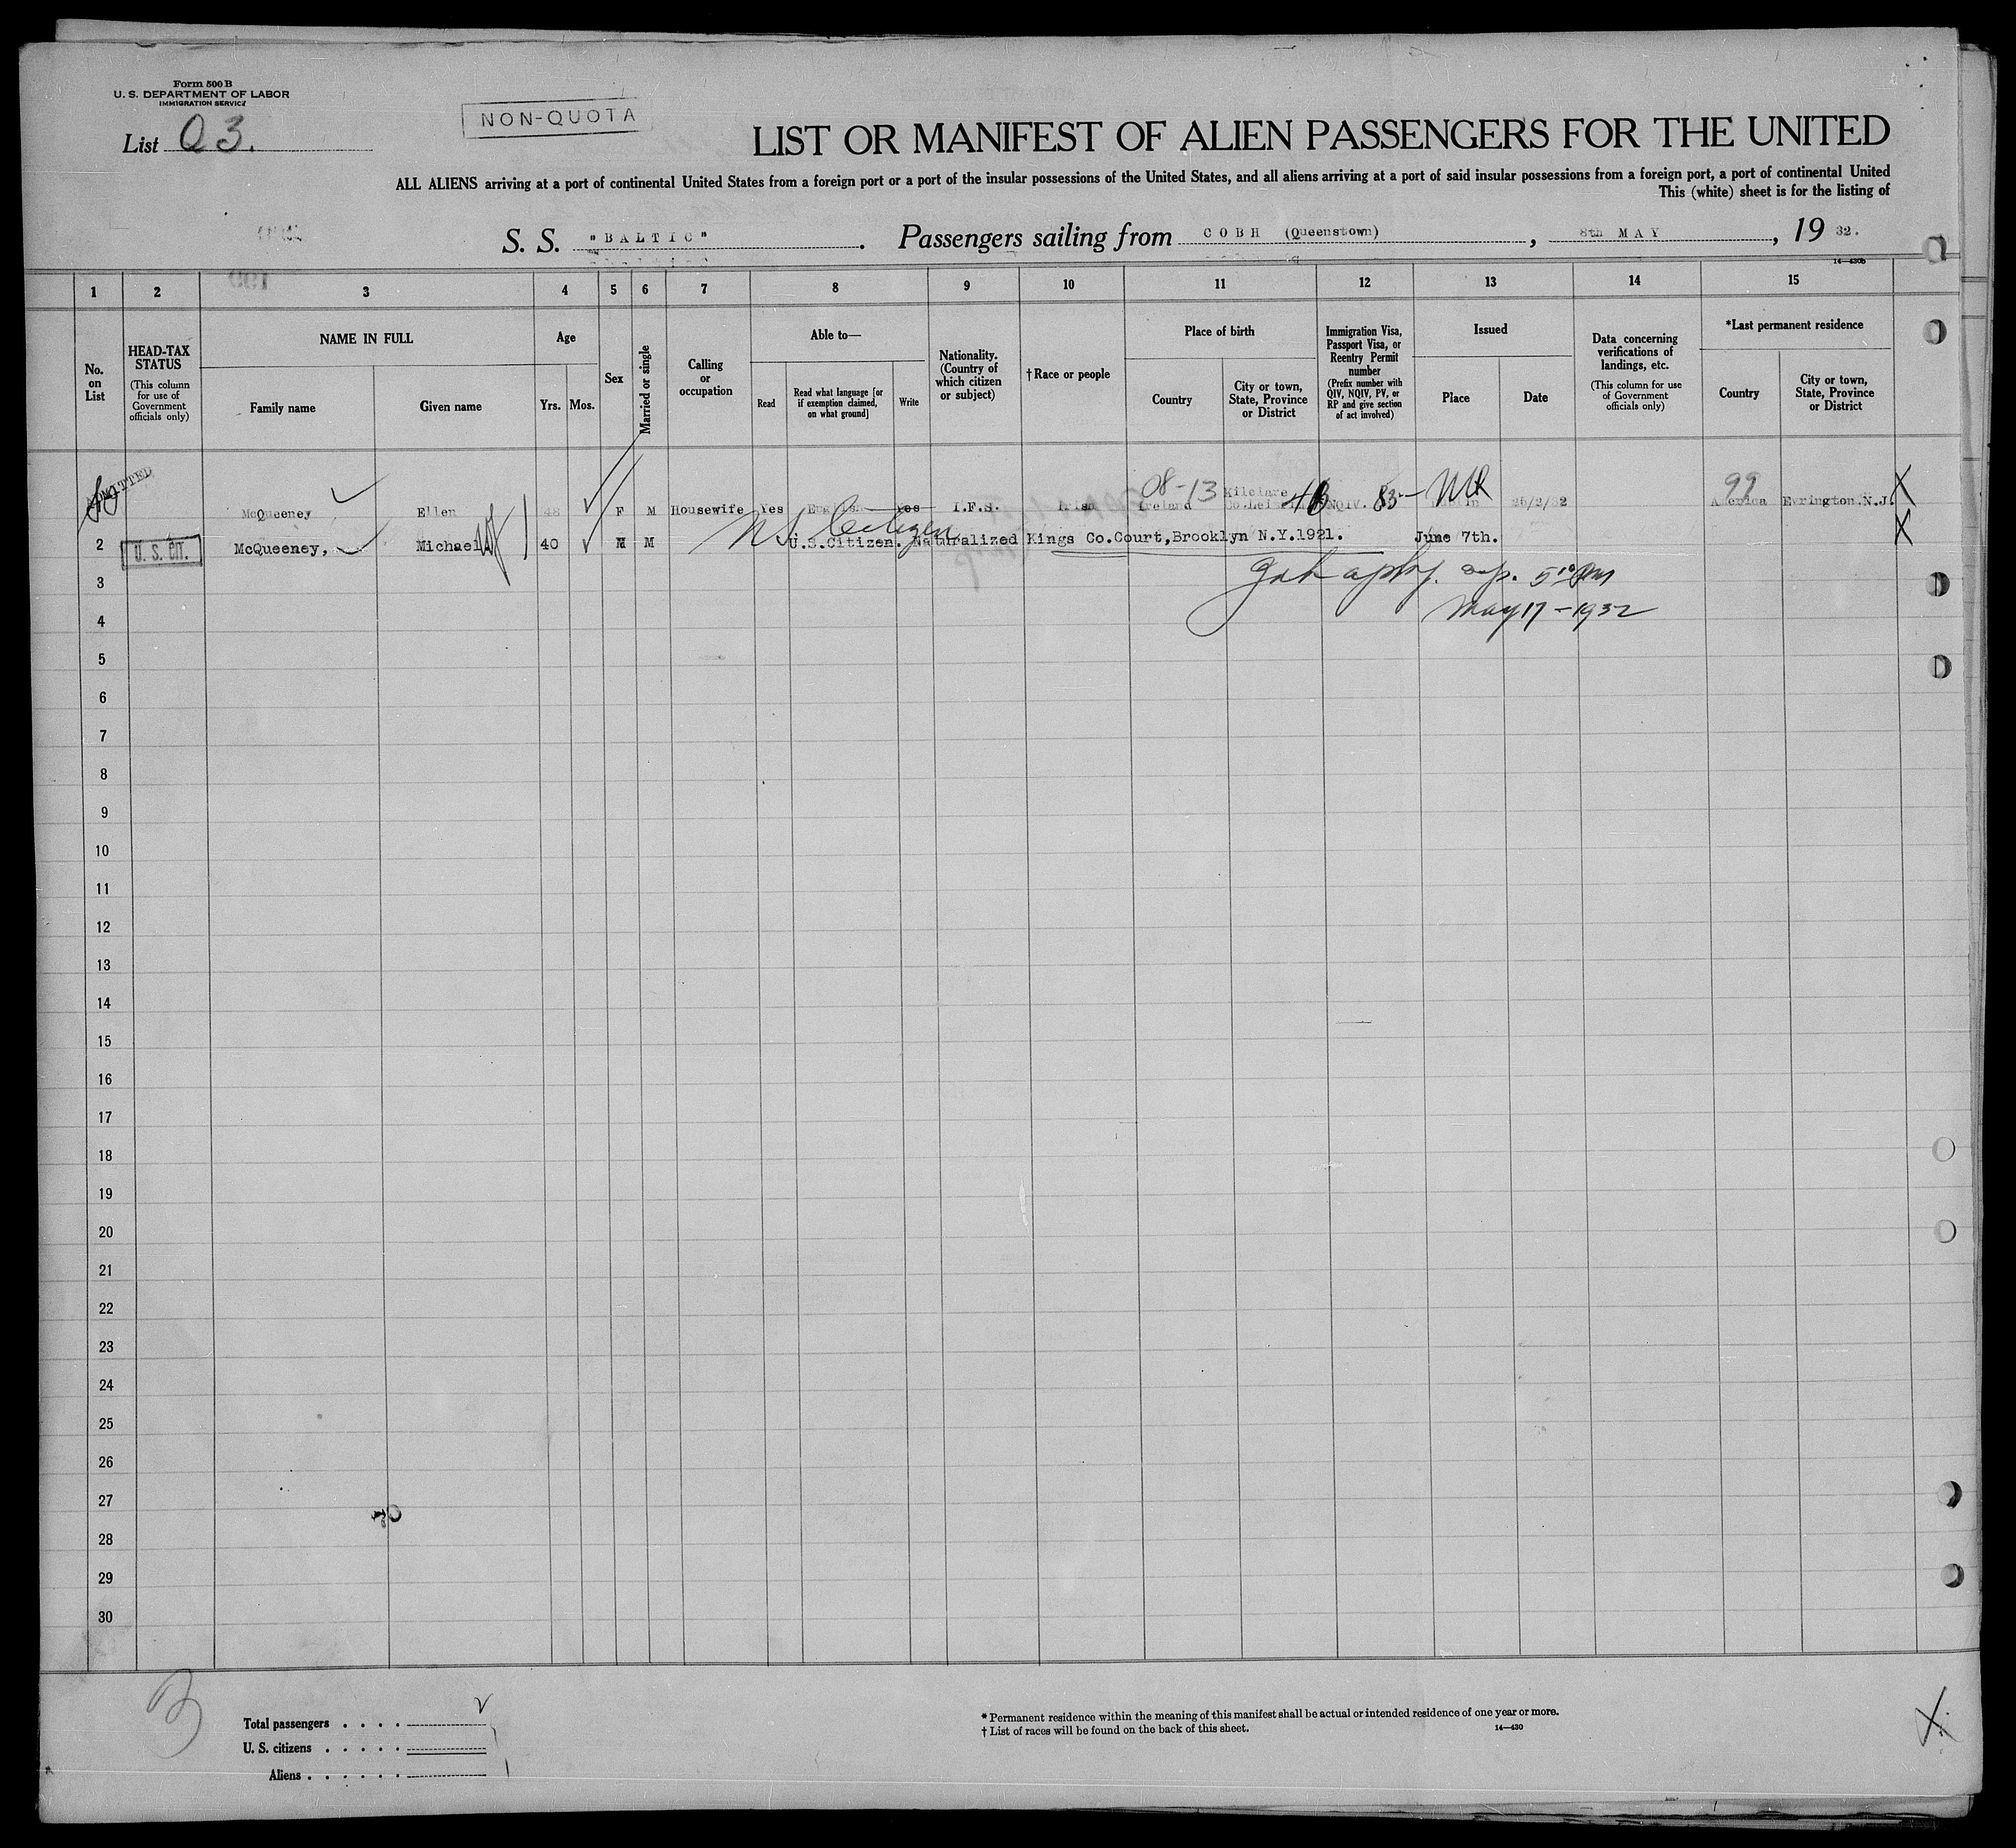 Form 500 B
U. S. DEPARTMENT OF LABOR
IMMIGRATION SERVICE
List Q 3.
NON-QUOTA
LIST OR MANIFEST OF ALIEN PASSENGERS FOR THE UNITED
ALL ALIENS arriving at a port of continental United States from a foreign port or a port of the insular possessions of the United States, and all aliens arriving at a port of said insular possessions from a foreign port, a port of continental United
This (white) sheet is for the listing of
S. S. "BALTIC". Passengers sailing from COBH (Queenstown), 8th MAY, 19 32.
14—430b
1 2 3 4 5 6 7 8 9 10 11 12 13 14 15
No. on List
HEAD-TAX STATUS
(This column for use of Government officials only)
NAME IN FULL
Family name
Given name
Age
Yrs. Mos.
Sex
Married or single
Calling or occupation
Able to—
Read
Read what language [or if exemption claimed, on what ground]
Write
Nationality. (Country of which citizen or subject)
†Race or people
Place of birth
Country
City or town, State, Province or District
Immigration Visa, Passport Visa, or Reentry Permit number
(Prefix number with QIV, NQIV, PV, or RP and give section of act involved)
Issued
Place
Date
Data concerning verifications of landings, etc.
(This column for use of Government officials only)
*Last permanent residence
Country
City or town, State, Province or District
ADMITTED
08-13 99
1 McQueeney Ellen 48 F M Housewife Yes English Yes I.F.S. Irish Ireland Kilclare Co. 4B NQIV. 83 26/2/32 America Evrington.N.J.
US Citizen
2 U. S. CIT. McQueeney, Michael 40 M M U.S.Citizen. Naturalized Kings Co.Court,Brooklyn N.Y.1921. June 7th.
3
May 17-1932
4
5
6
7
8
9
10
11
12
13
14
15
16
17
18
19
20
21
22
23
24
25
26
27
28
29
30
Total passengers
U. S. citizens
Aliens
* Permanent residence within the meaning of this manifest shall be actual or intended residence of one year or more.
† List of races will be found on the back of this sheet.
14—430